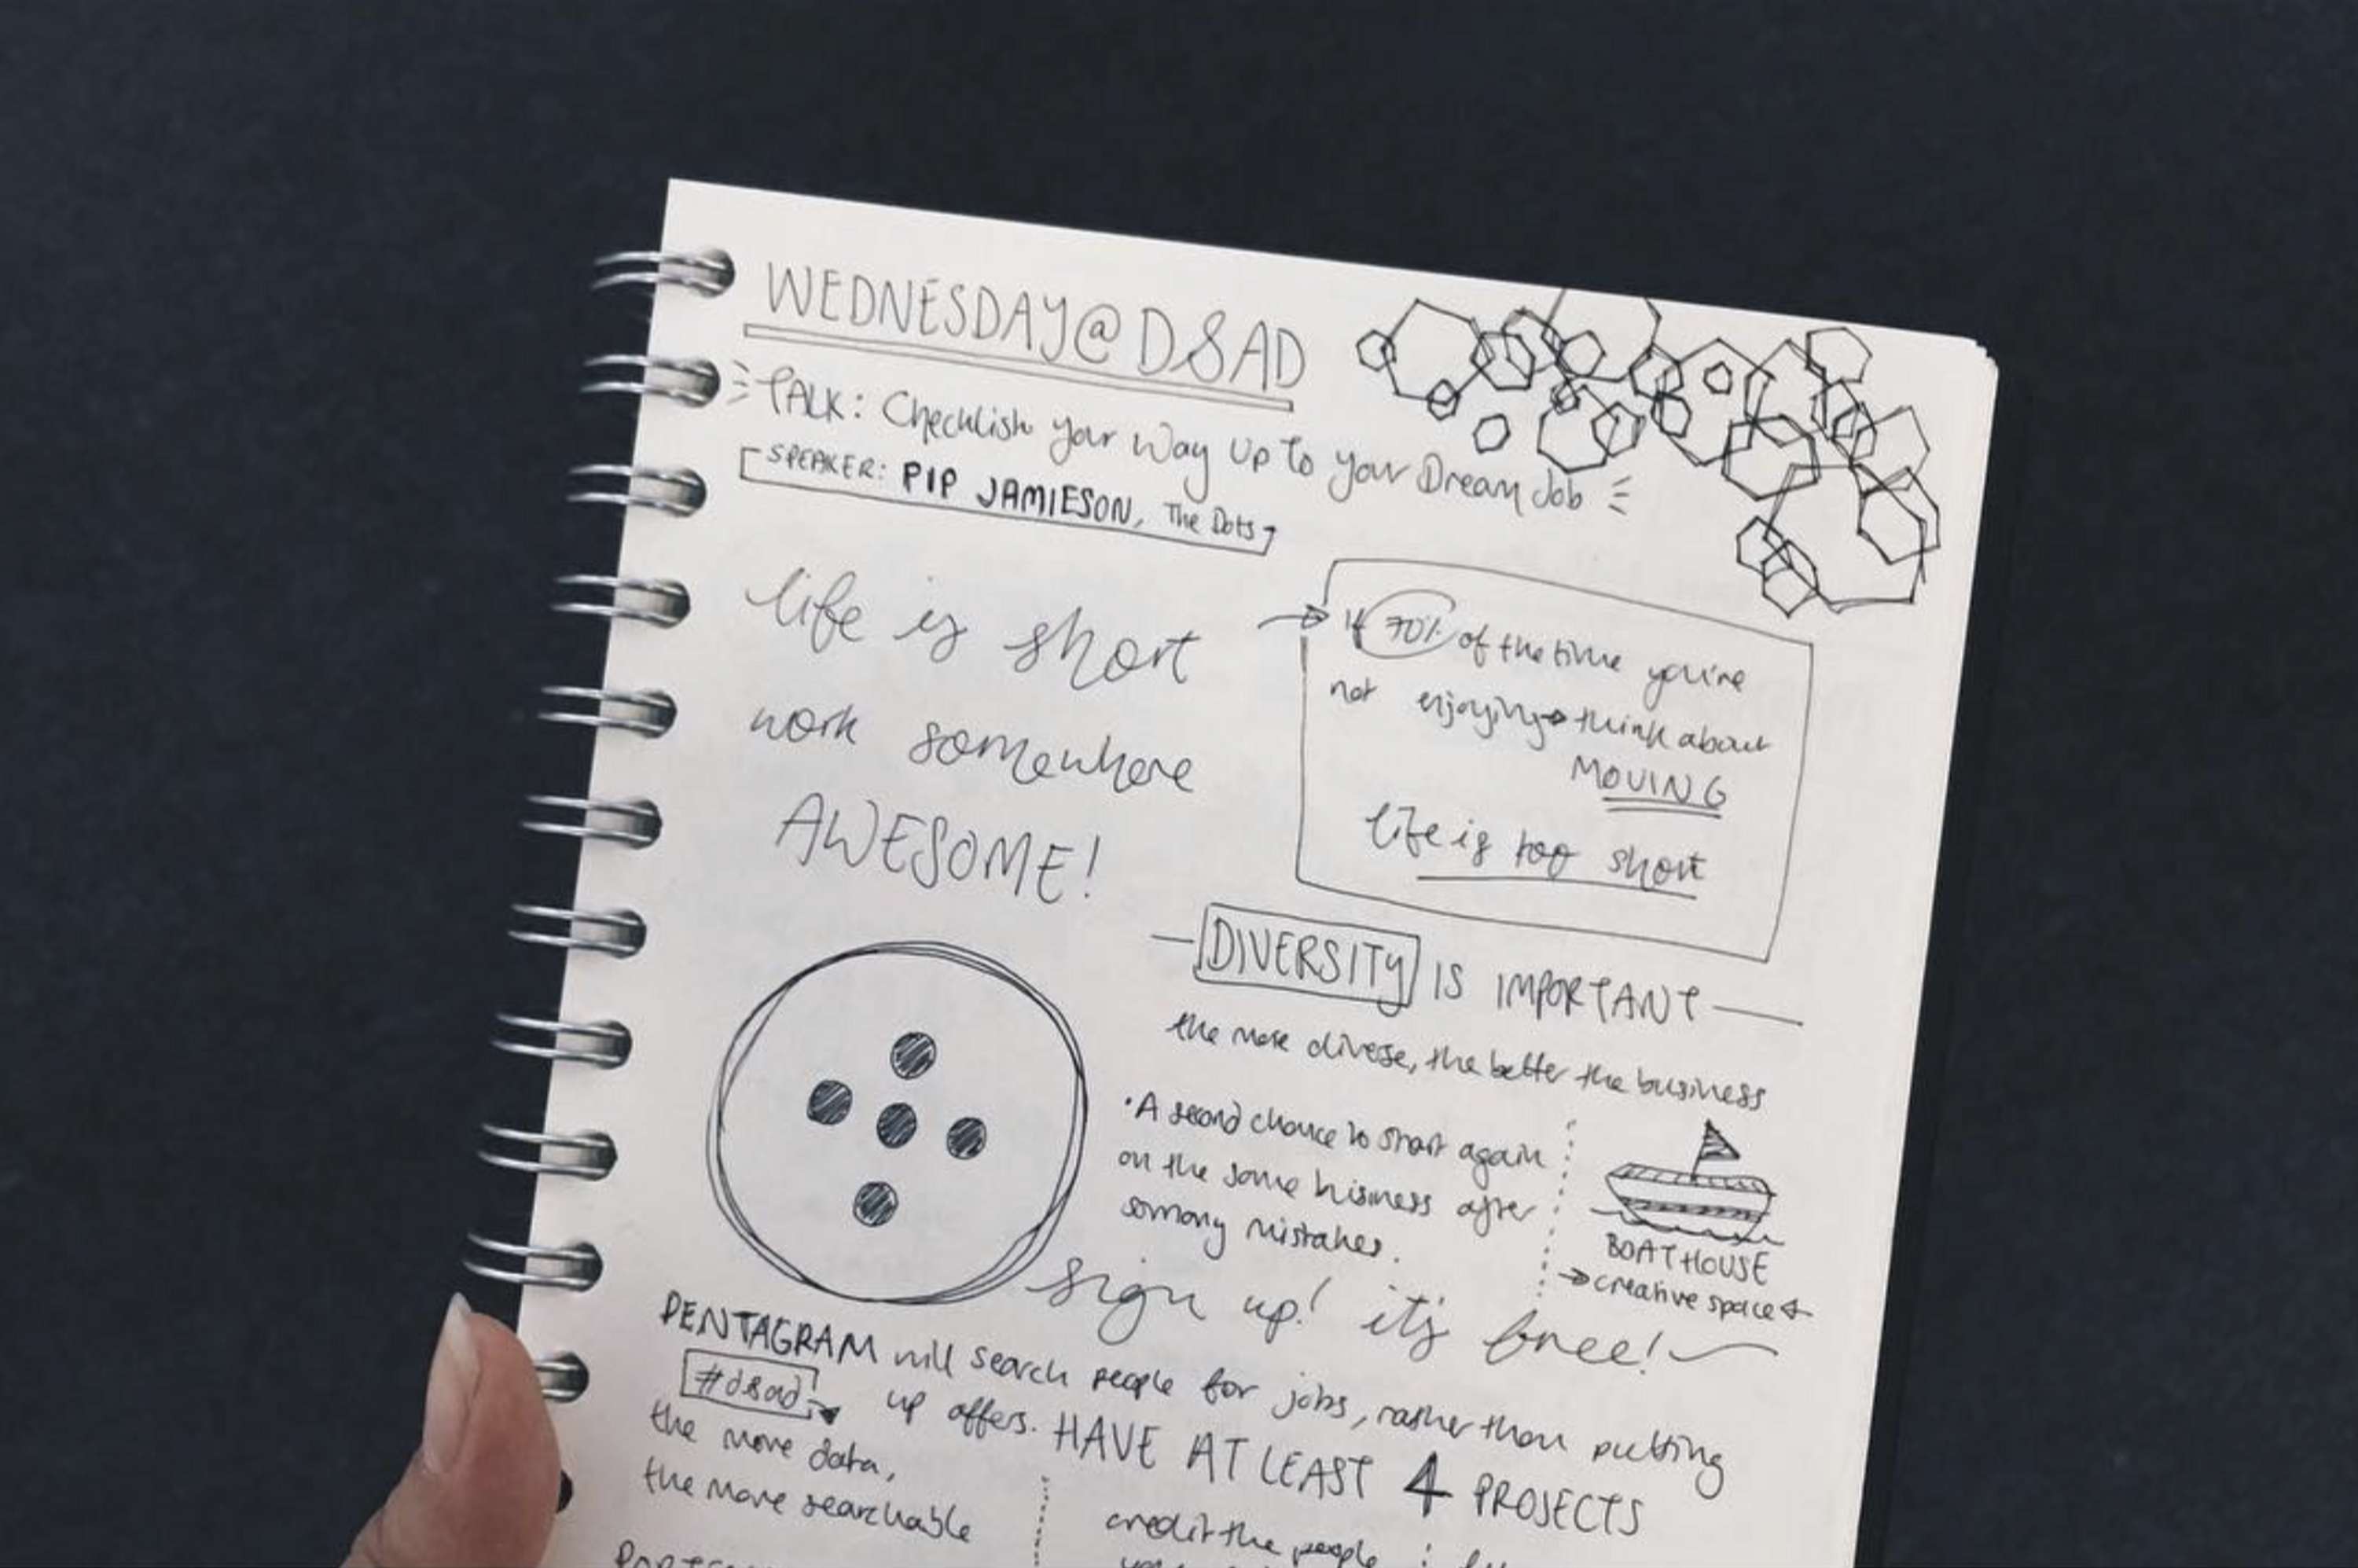 WEDNESDAY @ D&AD
TALK: Checklist your way up to your Dream Job
SPEAKER: PIP JAMIESON, The Dots
life is short
work somewhere
AWESOME!
If 70% of the time you're
not enjoying → think about
MOVING
life is too short
DIVERSITY IS IMPORTANT
the more diverse, the better the business
• A second chance to start again
on the same business after
so many mistakes.
BOATHOUSE
→ creative space ←
sign up! it's free!
PENTAGRAM will search people for jobs, rather than putting
up offers.
#d&ad
the more data,
the more searchable
HAVE AT LEAST 4 PROJECTS
credit the people